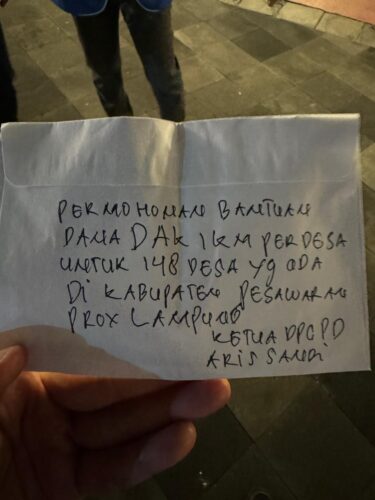 PERMOHONAN BANTUAN
DANA DAK IKM PERDESA
UNTUK 148 DESA Yg ADA
DI KABUPATEN PESAWARAN
PROX LAMPUNG
KETUA DPC PD
ARIS SANDI